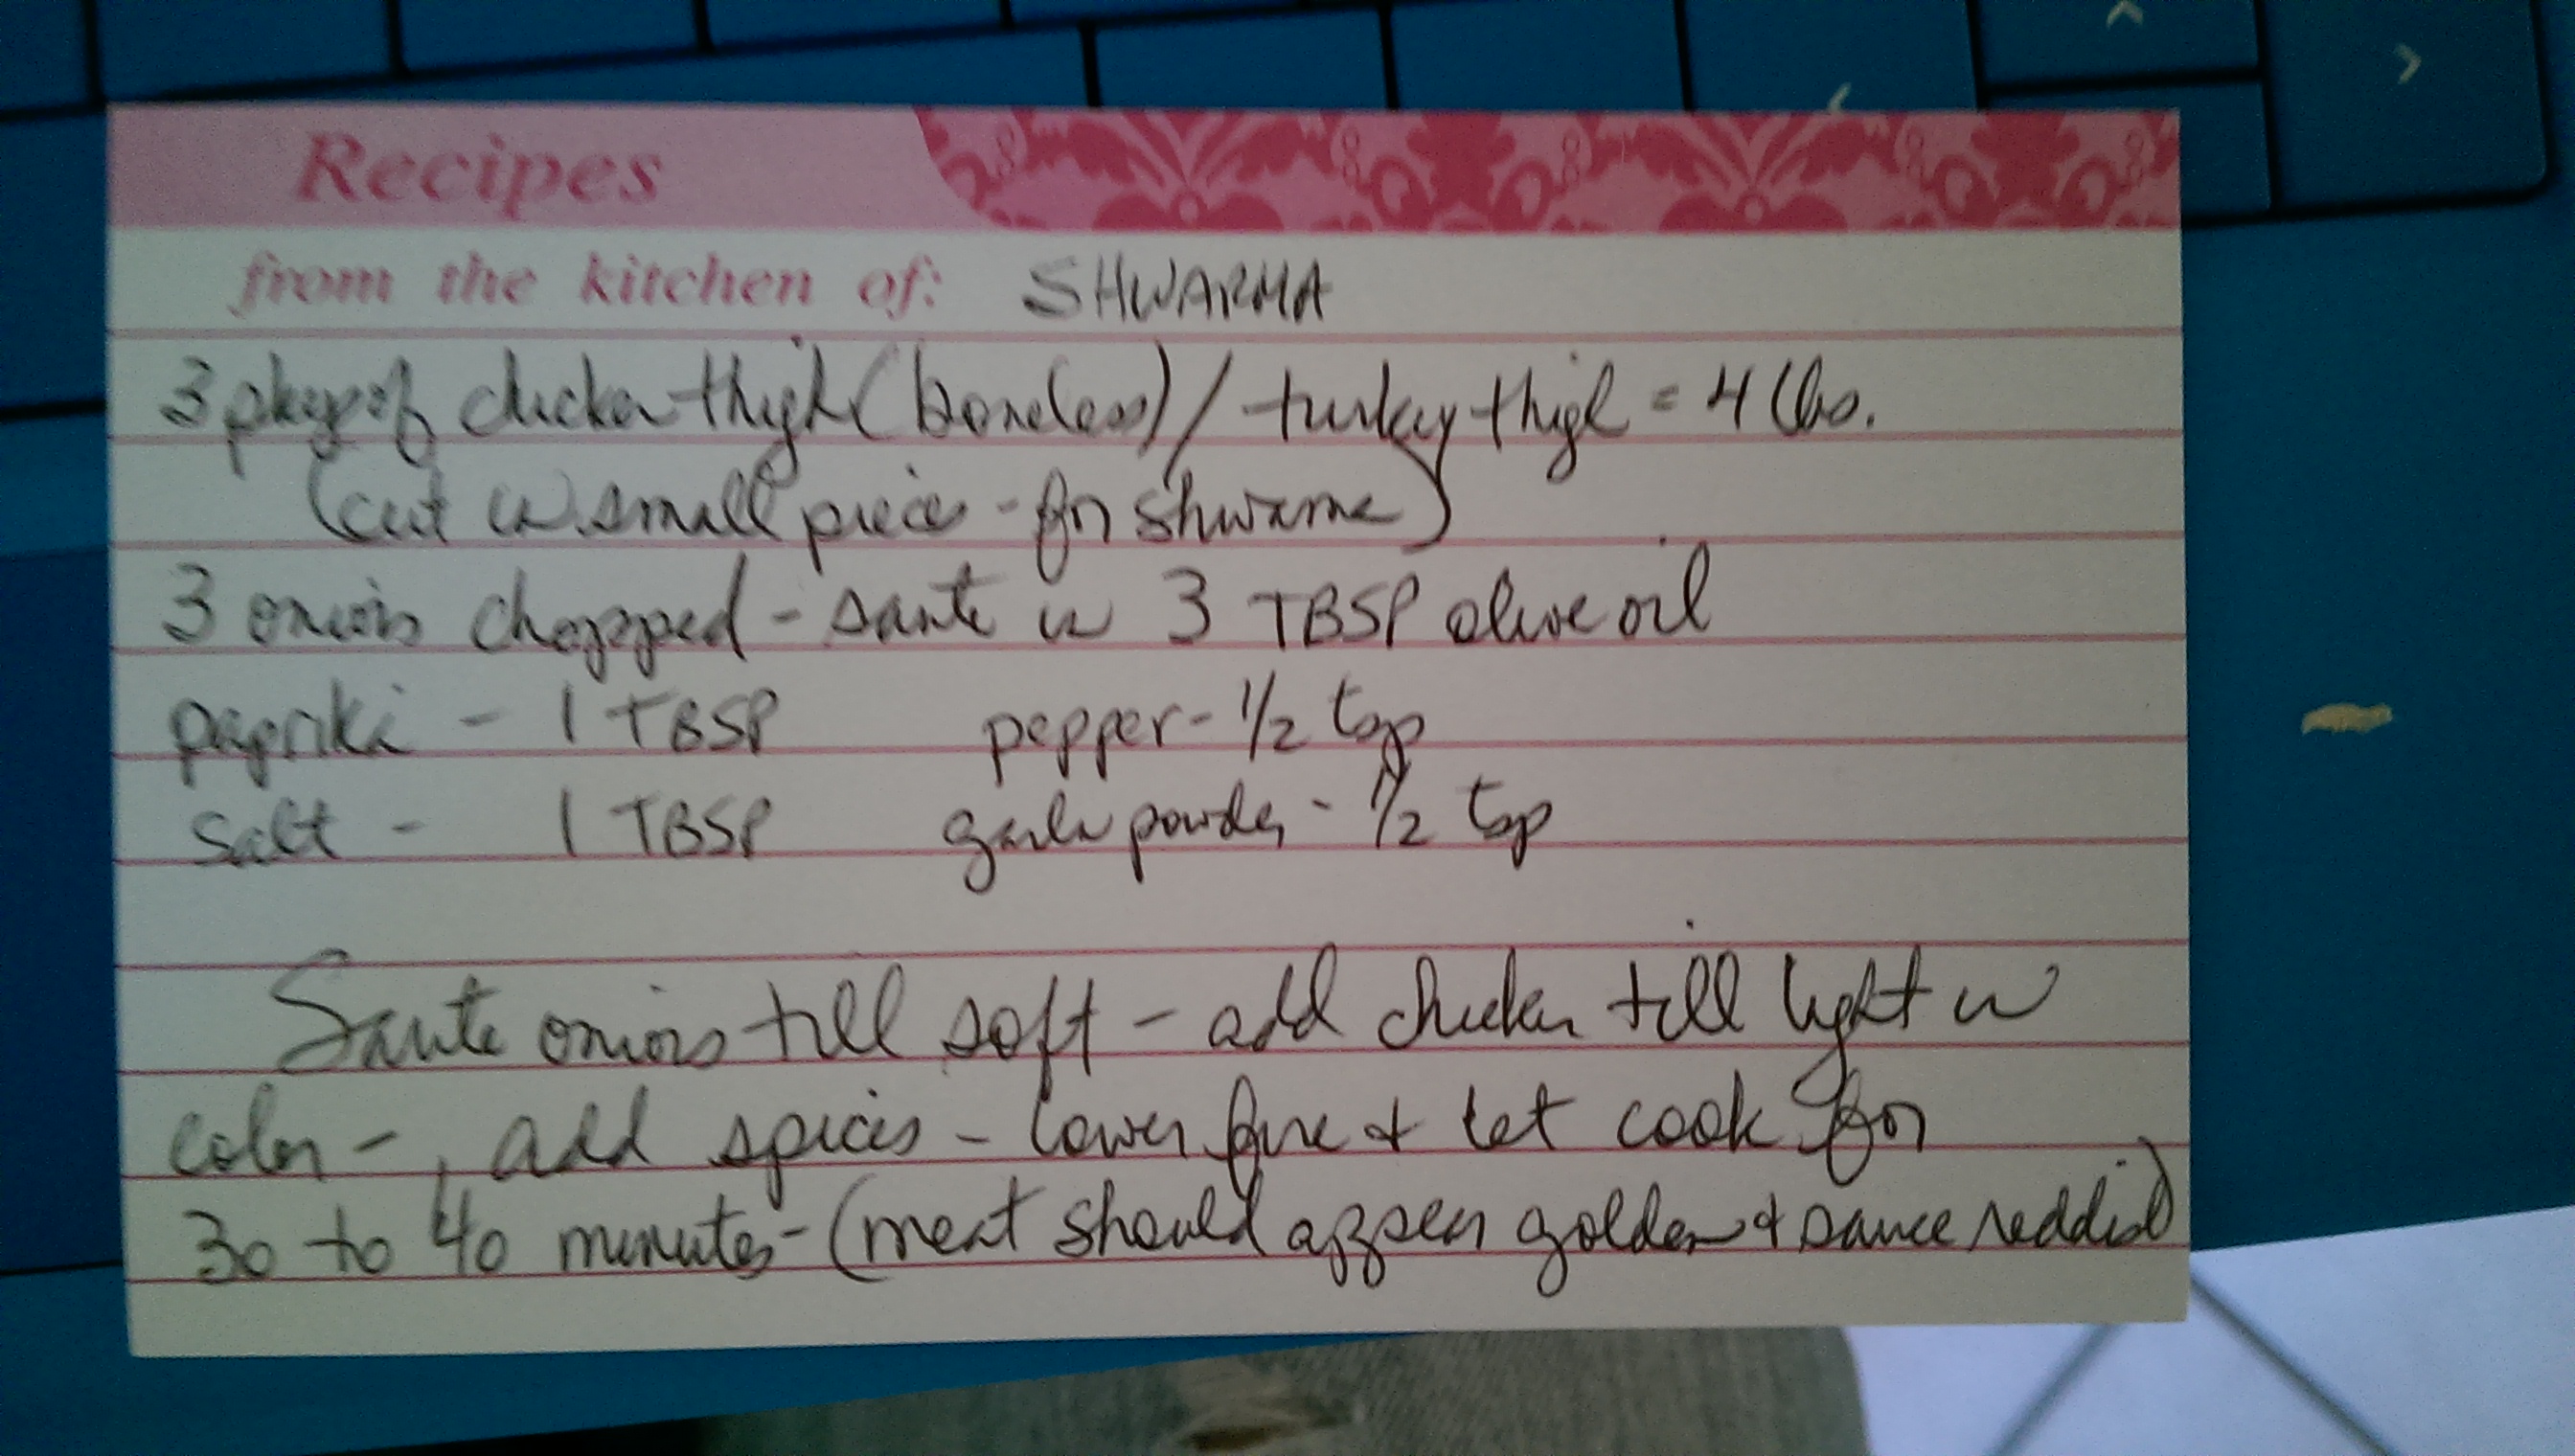 Recipes
from the kitchen of: SHWARMA
3 pkgs of chicken thigh (boneless) / turkey thigh = 4 lbs.
(cut in small pieces - for shwarma)
3 onions chopped - saute in 3 TBSP olive oil
papriki - 1 TBSP pepper - 1/2 tsp
salt - 1 TBSP garlic powder - 1/2 tsp
Saute onions till soft - add chicken till light in
color - , add spices - lower fire & let cook for
30 to 40 minutes - (meat should appear golden & sauce reddish)